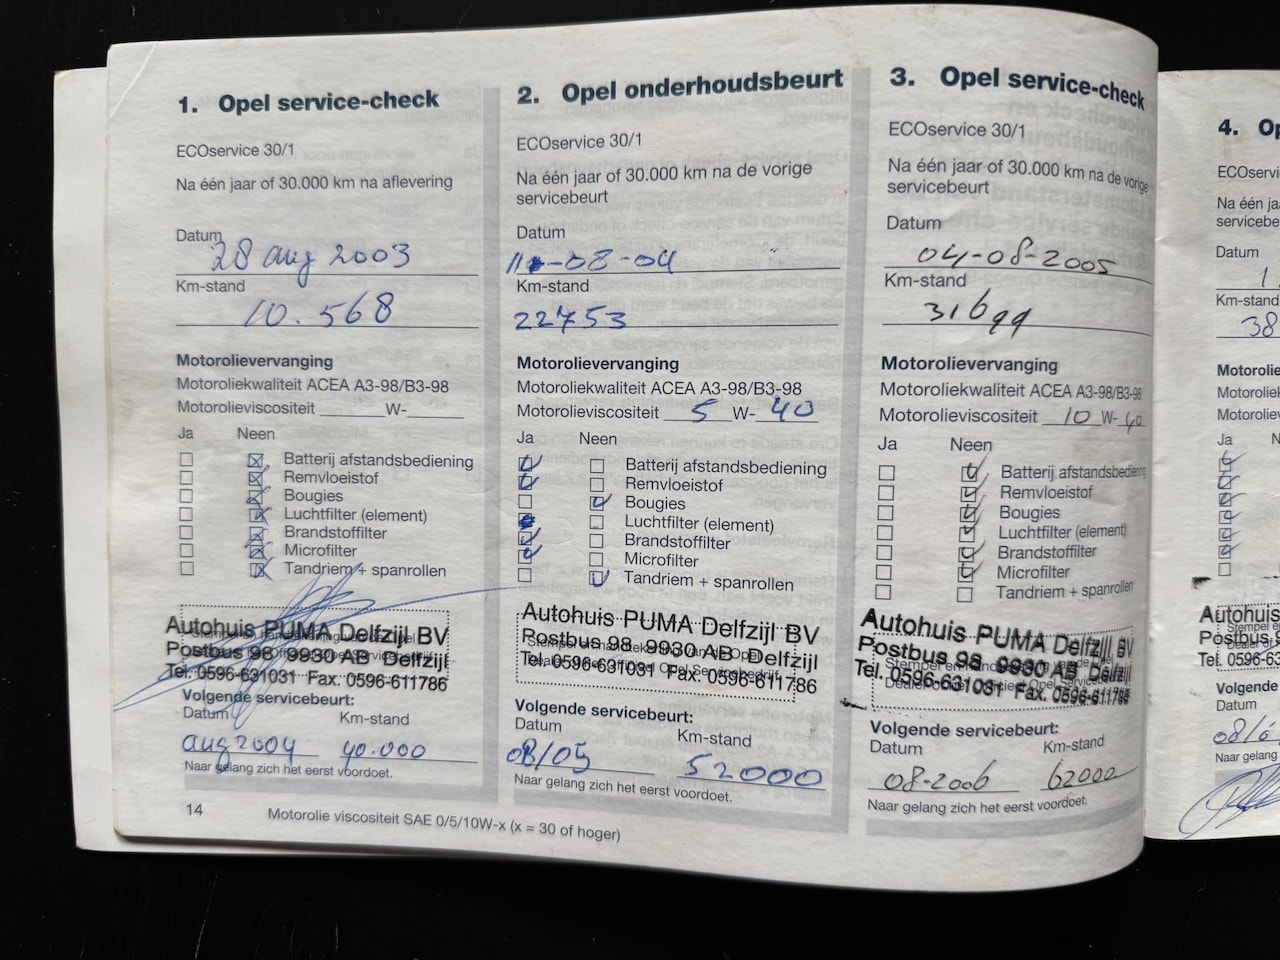 1. Opel service-check
ECOservice 30/1
Na één jaar of 30.000 km na aflevering
Datum
28 aug 2003
Km-stand
10.568
Motorolievervanging
Motoroliekwaliteit ACEA A3-98/B3-98
Motorolieviscositeit W-
Ja Neen
Batterij afstandsbediening
Remvloeistof
Bougies
Luchtfilter (element)
Brandstoffilter
Microfilter
Tandriem + spanrollen
Autohuis PUMA Delfzijl BV
Postbus 98 9930 AB Delfzijl
Tel. 0596-631031 Fax. 0596-611786
Volgende servicebeurt:
Datum Km-stand
aug 2004 40.000
Naar gelang zich het eerst voordoet.
14
Motorolie viscositeit SAE 0/5/10W-x (x = 30 of hoger)
2. Opel onderhoudsbeurt
ECOservice 30/1
Na één jaar of 30.000 km na de vorige
servicebeurt
Datum
-08-04
Km-stand
22753
Motorolievervanging
Motoroliekwaliteit ACEA A3-98/B3-98
Motorolieviscositeit 5 W- 40
Ja Neen
Batterij afstandsbediening
Remvloeistof
Bougies
Luchtfilter (element)
Brandstoffilter
Microfilter
Tandriem + spanrollen
Autohuis PUMA Delfzijl BV
Postbus 98 9930 AB Delfzijl
Tel. 0596-631031 Fax. 0596-611786
Volgende servicebeurt:
Datum Km-stand
08/05 52000
Naar gelang zich het eerst voordoet.
3. Opel service-check
ECOservice 30/1
Na één jaar of 30.000 km na de vorige
servicebeurt
Datum
04-08-2005
Km-stand
31699
Motorolievervanging
Motoroliekwaliteit ACEA A3-98/B3-98
Motorolieviscositeit 10 W- 40
Ja Neen
Batterij afstandsbediening
Remvloeistof
Bougies
Luchtfilter (element)
Brandstoffilter
Microfilter
Tandriem + spanrollen
Autohuis PUMA Delfzijl BV
Postbus 98 9930 AB Delfzijl
Tel. 0596-631031 Fax. 0596-611786
Volgende servicebeurt:
Datum Km-stand
08-2006 62000
Naar gelang zich het eerst voordoet.
4. Op
ECOservi
Na één ja
servicebe
Datum
1
Km-stand
38
Motorolie
Motorolie
Motorolie
Ja N
Autohuis
Postbus
Tel. 0596-63
Volgende
Datum
08/0
Naar gelang